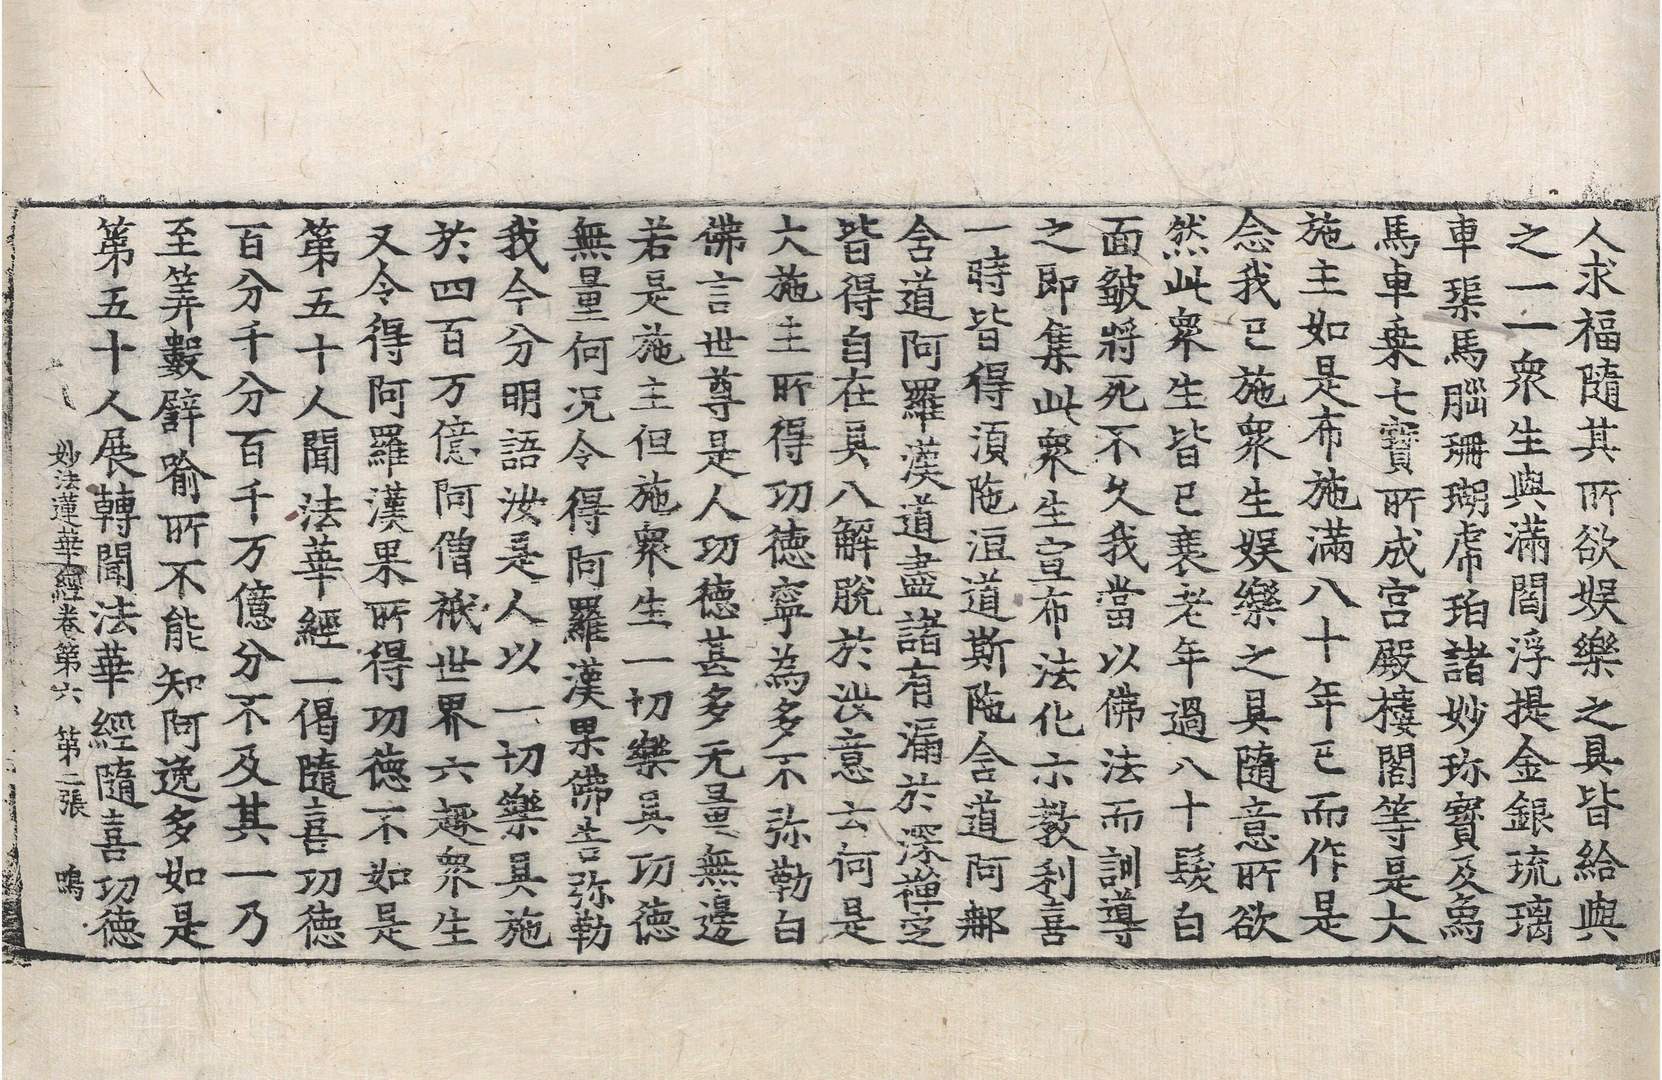 人求福隨其所欲娱樂之具皆給與
之一一衆生與滿閻浮提金銀琉璃
車𤦲馬腦珊瑚虎珀諸妙珎寶及象
馬車乗七寶所成宫殿樓閣等是大
施主如是布施滿八十年已而作是
念我已施衆生娱樂之具隨意所欲
然此衆生皆已衰老年過八十髮白
面皺將死不久我當以佛法而訓導
之即集此衆生宣布法化示教利喜
一時皆得湏陁洹道斯陁含道阿那
含道阿羅漢道盡諸有漏於深禪定
皆得自在具八解脫於汝意云何是
大施主所得功徳寧為多不弥勒白
佛言世尊是人功徳甚多无量無邊
若是施主但施衆生一切樂具功徳
無量何况令得阿羅漢果佛告弥勒
我今分明語汝是人以一切樂具施
於四百万億阿僧祇世界六趣衆生
又令得阿羅漢果所得功徳不如是
第五十人聞法華經一偈隨喜功徳
百分千分百千万億分不及其一乃
至筭數譬喻所不能知阿逸多如是
第五十人展轉聞法華經隨喜功徳
妙法蓮華經卷第六 第二張 鳴